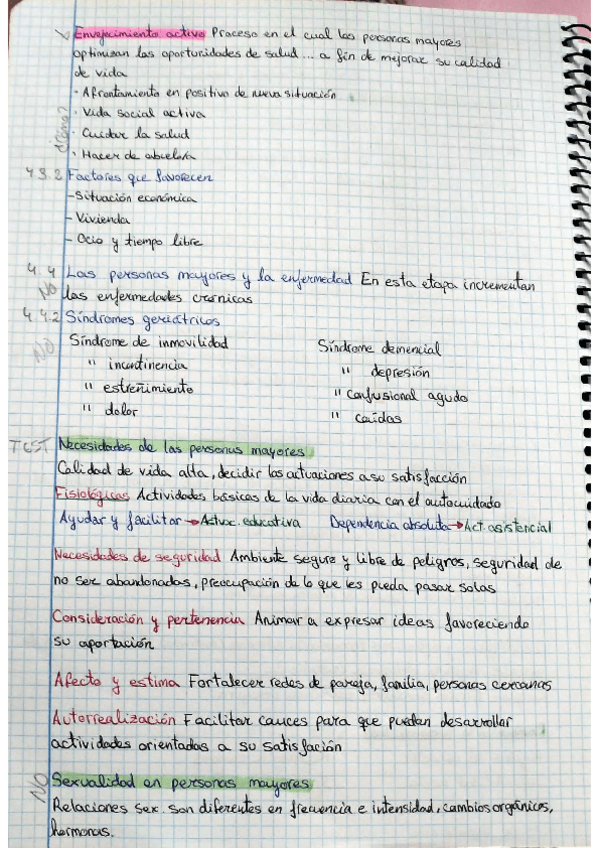 Envejecimiento activo Proceso en el cual las personas mayores
optimizan las oportunidades de salud ... a fin de mejorar su calidad
de vida
· Afrontamiento en positivo de nueva situación
· Vida social activa
¿Cómo?
· Cuidar la salud
· Hacer de abuelo/a
4.3.2 Factores que favorecen
- Situación económica
- Vivienda
- Ocio y tiempo libre
4.4 Las personas mayores y la enfermedad En esta etapa incrementan
NO las enfermedades crónicas
4.4.2 Síndromes geriátricos
NO
Síndrome de inmovilidad Síndrome demencial
" incontinencia " depresión
" estreñimiento " confusional agudo
" dolor " caídas
TEST Necesidades de las personas mayores
Calidad de vida alta, decidir las actuaciones a su satisfacción
Fisiológicas Actividades básicas de la vida diaria con el autocuidado
Ayudar y facilitar → Actuac. educativa Dependencia absoluta → Act. asistencial
Necesidades de seguridad Ambiente seguro y libre de peligros, seguridad de
no ser abandonadas, preocupación de lo que les pueda pasar solas
Consideración y pertenencia Animar a expresar ideas favoreciendo
su aportación
Afecto y estima Fortalecer redes de pareja, familia, personas cercanas
Autorrealización Facilitar cauces para que puedan desarrollar
actividades orientadas a su satisfacción
NO Sexualidad en personas mayores
Relaciones sex. son diferentes en frecuencia e intensidad, cambios orgánicos,
hormonas.